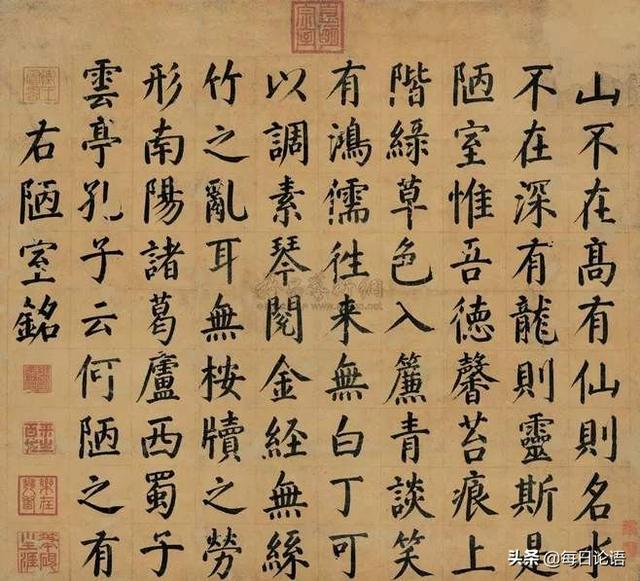 山不在髙有仙則名水
不在深有龍則靈斯是
陋室惟吾德馨苔痕上
階緑草色入簾青談笑
有鴻儒往来無白丁可
以調素琴閱金經無絲
竹之亂耳無桉牘之勞
形南陽諸葛廬西蜀子
雲亭孔子云何陋之有
右陋室銘
头条@每日论语